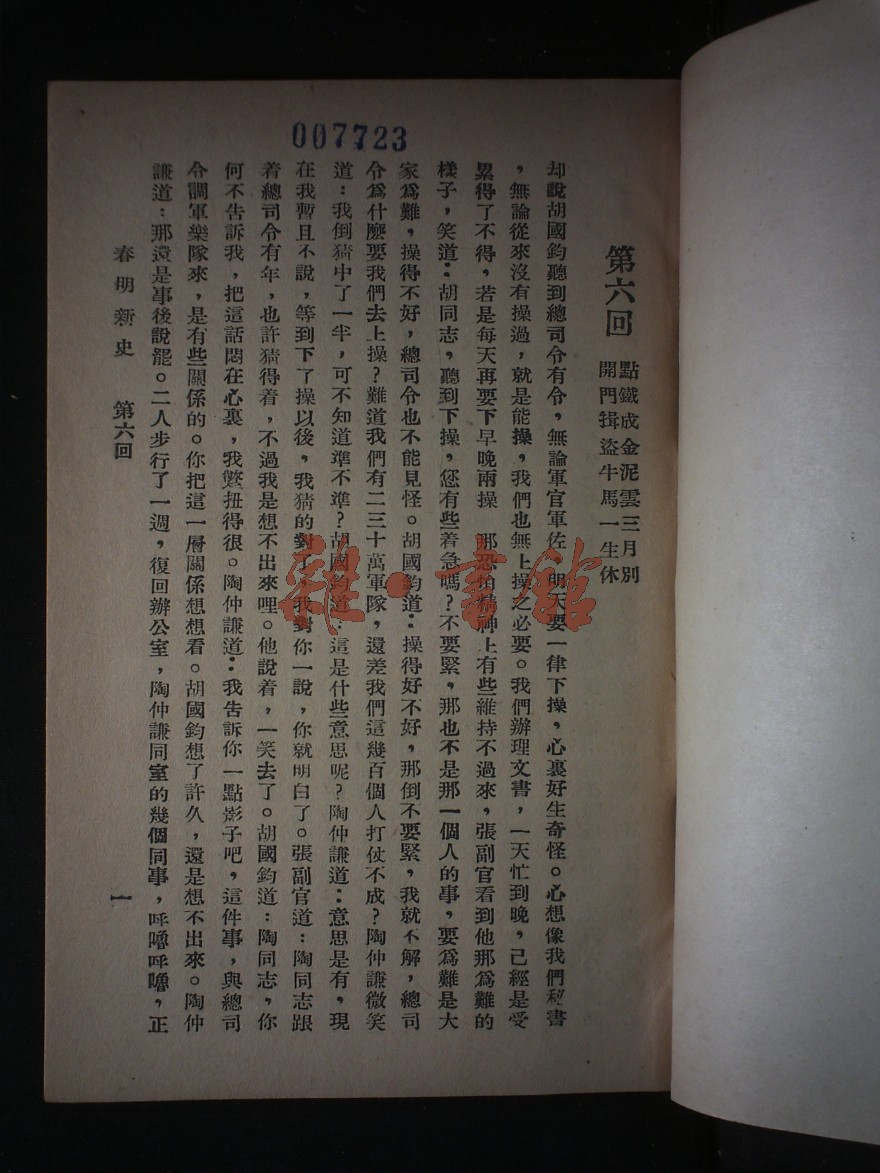 007723
第六回
點鐵成金泥雲三月別
開門揖盜牛馬一生休
却說胡國鈞聽到總司令有令，無論軍官軍佐，明天要一律下操，心裏好生奇怪。心想像我們秘書
，無論從來沒有操過，就是能操，我們也無上操之必要。我們辦理文書，一天忙到晚，已經是受
累得了不得，若是每天再要下早晚兩操　那恐怕精神上有些維持不過來，張副官看到他那爲難的
樣子，笑道：胡同志，聽到下操，您有些着急嗎？不要緊，那也不是那一個人的事，要爲難是大
家爲難，操得不好，總司令也不能見怪。胡國鈞道：操得好不好，那倒不要緊，我就不解，總司
令爲什麽要我們去上操？難道我們有二三十萬軍隊，還差我們這幾百個人打仗不成？陶仲謙微笑
道：我倒猜中了一半，可不知道準不準？胡國鈞道：這是什些意思呢？陶仲謙道：意思是有，現
在我暫且不說，等到下了操以後，我猜的對了，我對你一說，你就明白了。張副官道：陶同志跟
着總司令有年，也許猜得着，不過我是想不出來哩。他說着，一笑去了。胡國鈞道：陶同志，你
何不告訴我，把這話悶在心裏，我彆扭得很。陶仲謙道：我告訴你一點影子吧，這件事，與總司
令調軍樂隊來，是有些關係的。你把這一層關係想想看。胡國鈞想了許久，還是想不出來。陶仲
謙道：那還是事後說罷。二人步行了一週，復回辦公室，陶仲謙同室的幾個同事，呼嚕呼嚕，正
春明新史　第六回　一
雜·書館